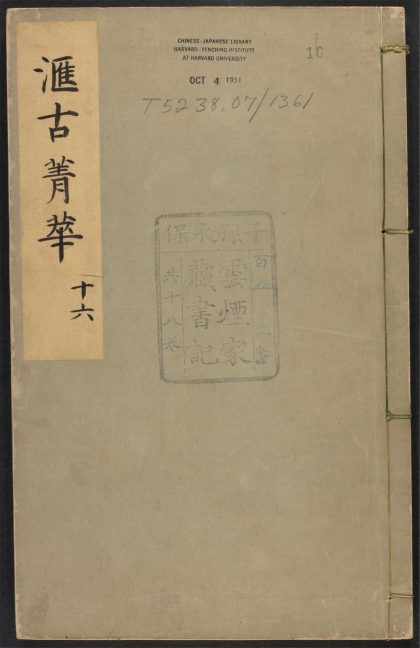 滙古菁華
十六
CHINESE-JAPANESE LIBRARY
HARVARD-YENCHING INSTITUTE
AT HARVARD UNIVERSITY
OCT 4 1951
16
T5238.07/1361
子孫永保
雲煙家
藏書記
共十八本